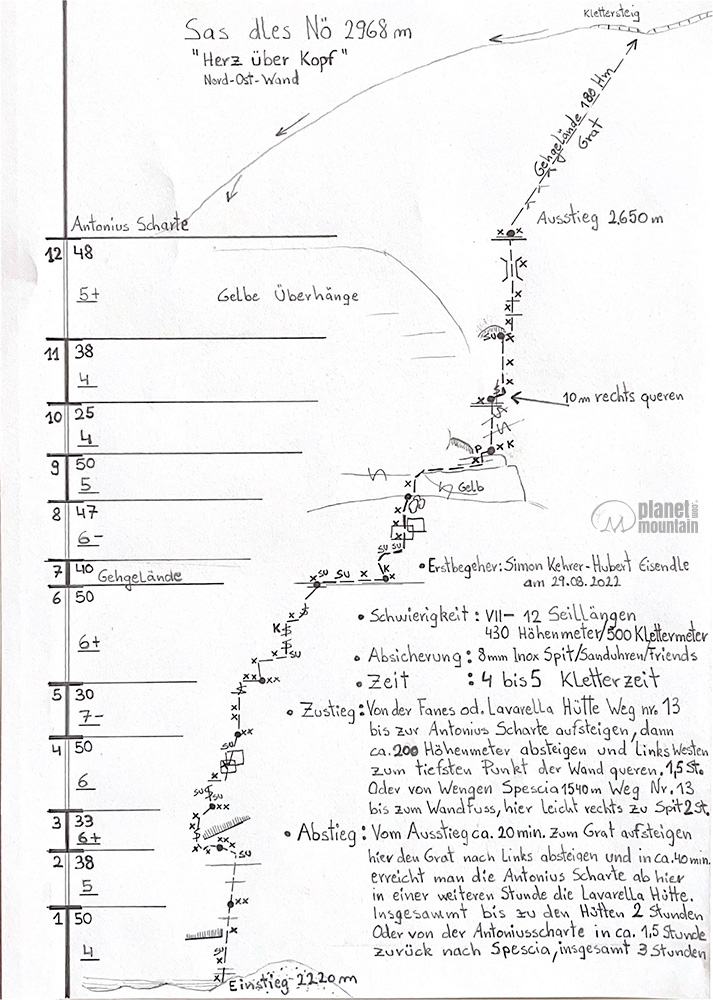 Klettersteig
Sas dles Nö 2968 m
"Herz über Kopf"
Nord-Ost-Wand
Gehgelände 180 Hm
Grat
Antonius Scharte
Ausstieg 2.650 m
12 48
5+
Gelbe Überhänge
SU
11 38
4
SU
10m rechts queren
10 25
4
P K
9 50
5
Gelb
8 47
6-
SU SU
planet
mountain
.com
7 40
Gehgelände
SU SU K
• Erstbegeher: Simon Kehrer-Hubert Eisendle
am 29.08.2022
6 50
6+
K
SU
• Schwierigkeit: VII- 12 Seillängen
430 Höhenmeter/500 Klettermeter
• Absicherung: 8mm Inox Spit/Sanduhren/Friends
• Zeit : 4 bis 5 Kletterzeit
5 30
7-
• Zustieg: Von der Fanes od. Lavarella Hütte Weg nr. 13
bis zur Antonius Scharte aufsteigen, dann
ca. 200 Höhenmeter absteigen und Links Westen
zum tiefsten Punkt der Wand queren. 1,5 St.
Oder von Wengen Spescia 1540m Weg Nr. 13
bis zum Wandfuss, hier leicht rechts zu Spit 2 St.
4 50
6
SU
SU
3 33
6+
• Abstieg: Vom Ausstieg ca. 20 min. zum Grat aufsteigen
hier den Grat nach Links absteigen und in ca. 40 min.
erreicht man die Antonius Scharte ab hier
in einer weiteren Stunde die Lavarella Hütte.
Insgesammt bis zu den Hütten 2 Stunden
Oder von der Antoniusscharte in ca. 1,5 Stunde
zurück nach Spescia, insgesamt 3 Stunden
2 38
5
SU
1 50
4
SU
Einstieg 2220 m